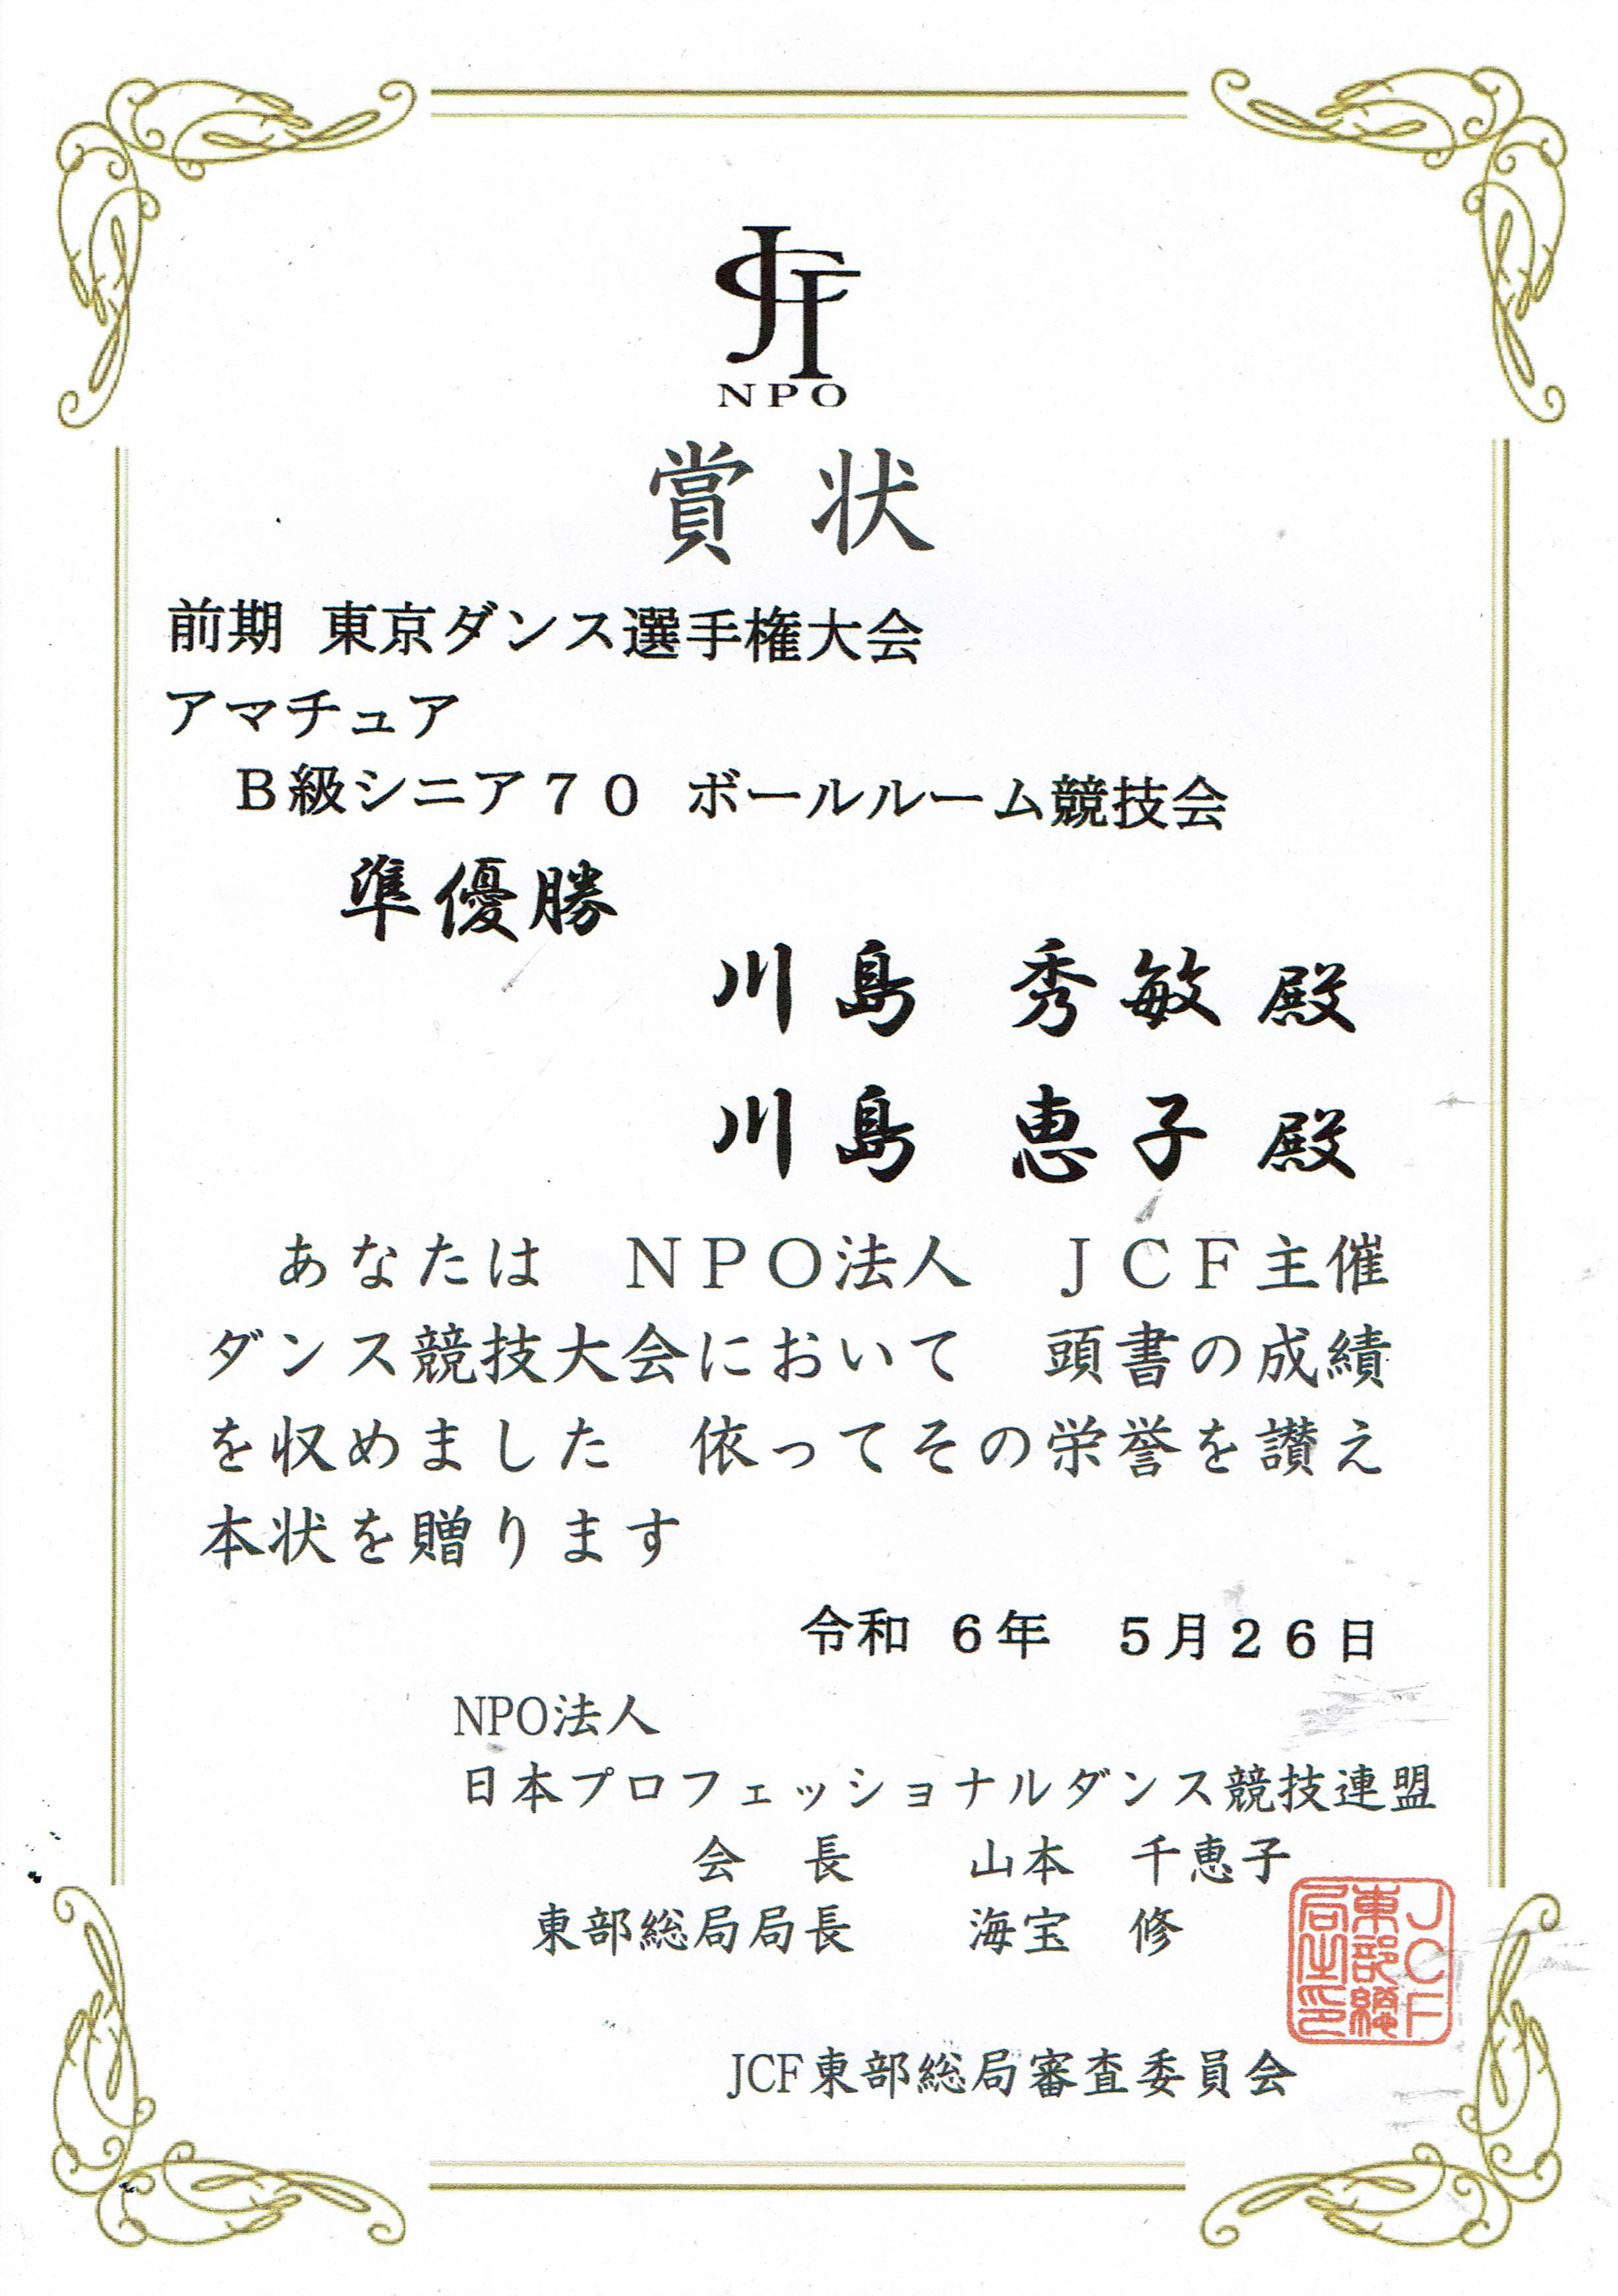 JCF
NPO
賞状
前期 東京ダンス選手権大会
アマチュア
B級シニア70 ボールルーム競技会
準優勝
川島 秀敏 殿
川島 恵子 殿
あなたは NPO法人 JCF主催
ダンス競技大会において 頭書の成績
を収めました 依ってその栄誉を讃え
本状を贈ります
令和 6年 5月26日
NPO法人
日本プロフェッショナルダンス競技連盟
会 長 山本 千恵子
東部総局局長 海宝 修
JCF東部総局之印
JCF東部総局審査委員会